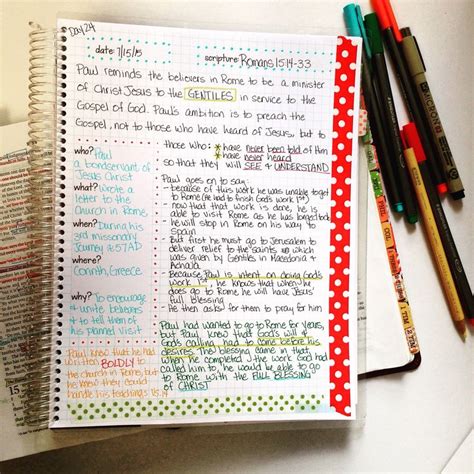 Day 24
date: 7/15/15
scripture: Romans 15:14-33
Paul reminds the believers in Rome to be a minister
of Christ Jesus to the GENTILES in service to the
Gospel of God. Paul's ambition is to preach the
Gospel, not to those who have heard of Jesus, but to
those who: * have never been told of him
* have never heard
so that they will SEE & UNDERSTAND
who? Paul
a bondservant of
Jesus Christ
what? Wrote a
letter to the
Church in Rome
when? During his
3rd missionary
Journey
where?
Corinth, Greece
why? To encourage
& unite believers
& to tell them of
his planned visit
Paul goes on to say -
- because of this work he was unable to get
to Rome (he had to finish God's work 1st)
- now that that work is done, he is
able to visit Rome as he has longed to. he
will stop in Rome on his way to
Spain
- But first he must go to Jerusalem to
deliver relief to the saints that
was given by Gentiles in Macedonia &
Achaia
- Because Paul is intent on doing God's
work 1st, he knows that when he
does go to Rome he will have Jesus' full
blessing
- He then asks for them to pray for him
Paul knew that he had
written BOLDLY to
the church in Rome, but
he knew they could
handle his teachings 15:14
Paul had wanted to go to Rome for years,
but Paul knew that God's will &
God's calling had to come before his
desires. The blessing came in that
when he completed the work God had
called him to, he would be able to go
to Rome with the FULL BLESSING
of CHRIST